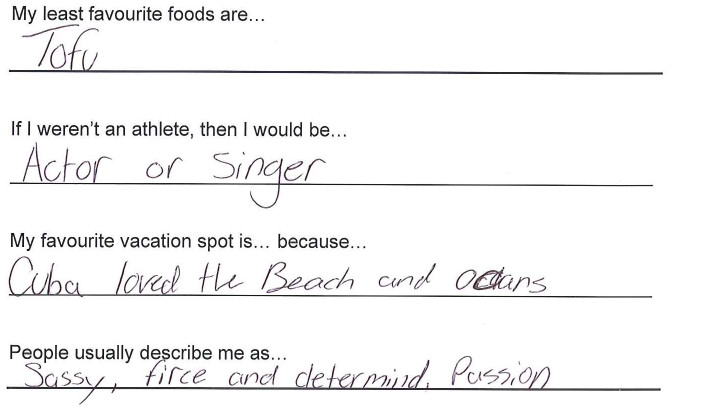 My least favourite foods are...
Tofu
If I weren't an athlete, then I would be...
Actor or Singer
My favourite vacation spot is... because...
Cuba loved the Beach and oceans
People usually describe me as...
Sassy, firce and determind. Passion